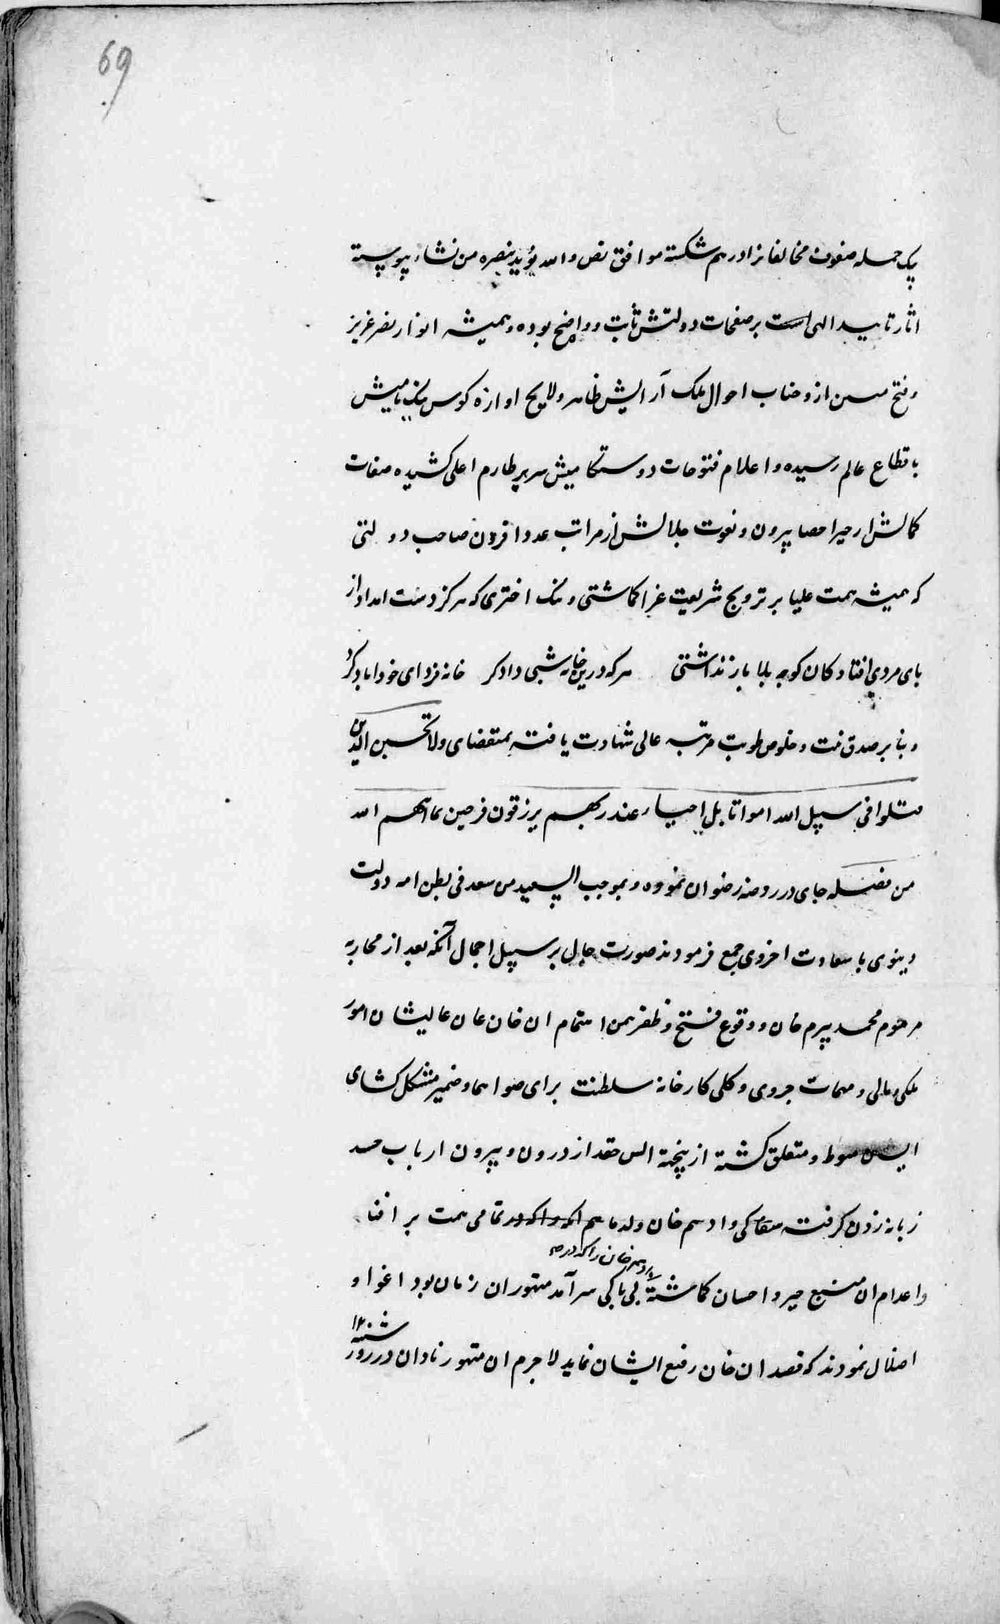 69
یک حمله صفوف مخالفانرا درهم شکسته موافق نص والله یؤید بنصره من یشاء پیوسته
اثار تایید الهی است بر صفحات دولتش ثابت و واضح بوده و همیشه انوار نصر عزیز
و فتح مبین از وجنات احوال ملک آرایش ظاهر و لایح اوازه کوس نیک نامیش
باقطاع عالم رسیده و اعلام فتوحات دوستکامیش سر بر طارم اعلی کشیده صفات
کمالش از حیز احصا بیرون و نعوت جلالش از مراتب عدد افزون صاحب دولتی
که همیشه همت علیا بر ترویج شریعت غرا کماشتی و نیک اختری که هرکز دست امداد از
پای مردی افتادکان کوچه بلا باز نداشتی هرکه درین خانه شبی داد کرد خانه فردای خود اباد کرد
و بنا بر صدق نیت و خلوص طویت مرتبه عالی شهادت یافته بمقتضای ولا تحسبن الذین
قتلوا فی سبیل الله امواتا بل احیاء عند ربهم یرزقون فرحین بما اتهم الله
من فضله جای در روضه رضوان نموده و بموجب السعید من سعد فی بطن امه دولت
دینوی با سعادت اخروی جمع فرمودند صورت حال بر سبیل اجمال آنکه بعد از محاربه
مرحوم محمد بیرم خان و وقوع فتح و ظفر بیمن اهتمام ان خان عالیشان امور
ملکی و مالی و مهمات جزوی و کلی کارخانه سلطنت برای صواب نما و ضمیر مشکل کشای
ایشان منوط و متعلق کشته ازینجهت اتش حقد از درون و بیرون ارباب حسد
زبانه زدن کرفت و ادهم خان ولد ماهم انکه تمامی همت بر افناء
و اعدام ان منبع خیر و احسان کماشته بی باکی سرآمد متهوران زمان بود اغوا و
ادهم خان را که در
اضلال نمودند که قصد ان خان رفیع الشان نماید لاجرم ان متهور نادان در روز شنبه ۱۲